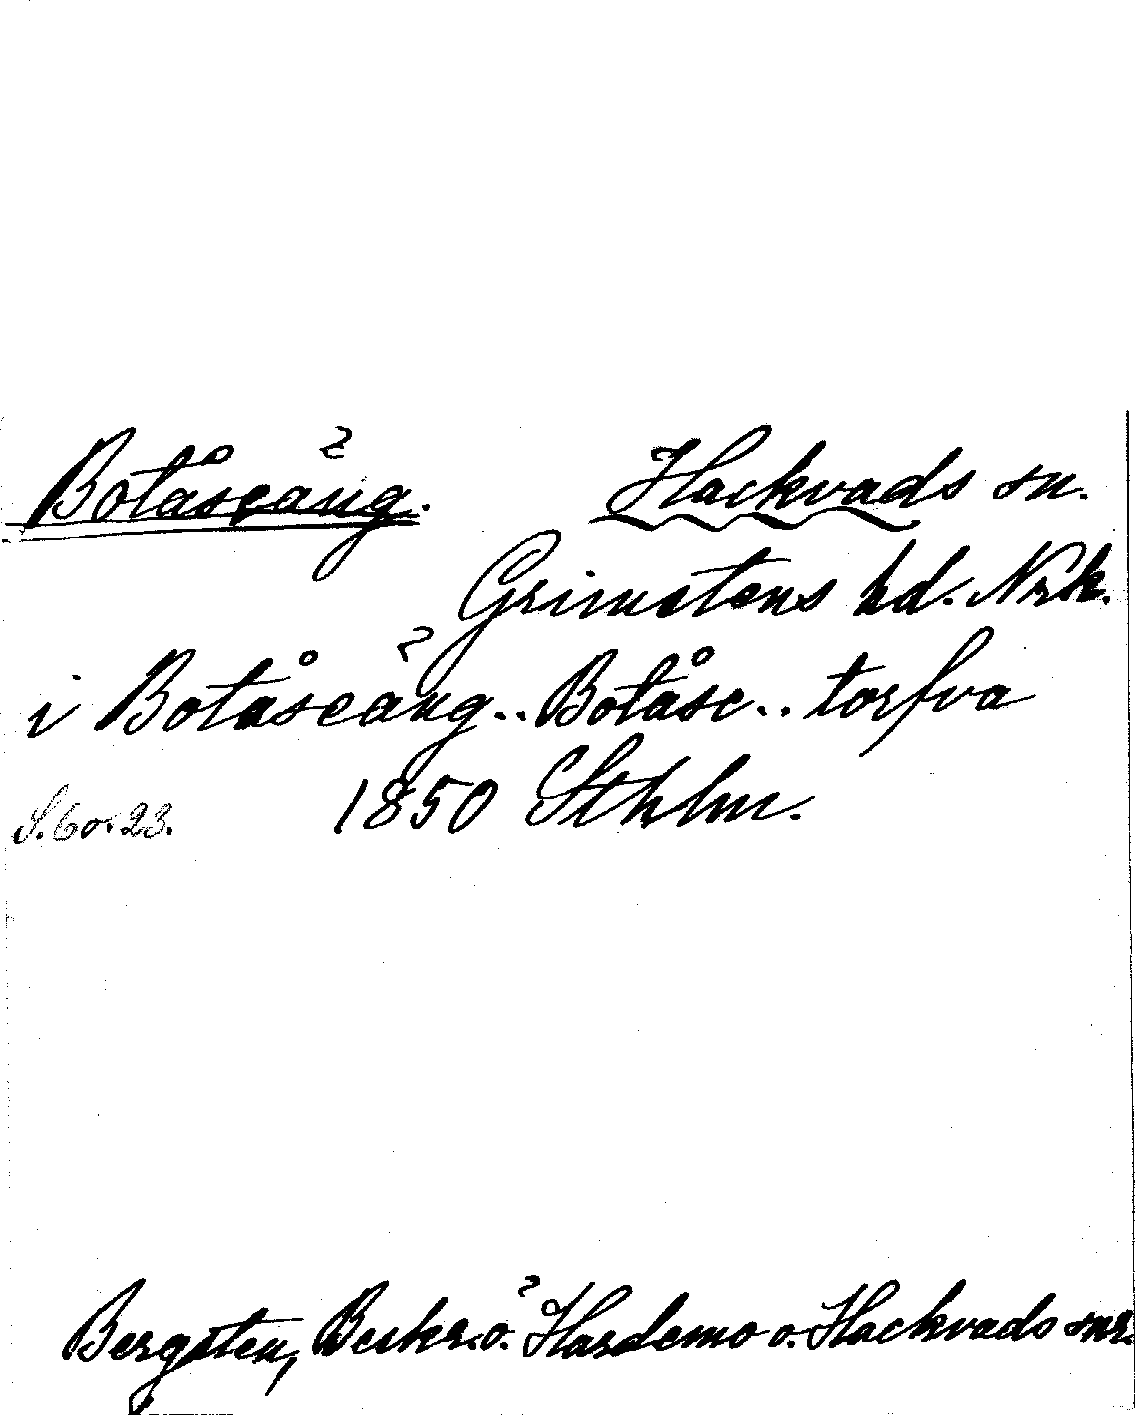 Botåseäng. Hackvads sn.
Grimstens hd. Nrk.
i Botåseäng.. Botåse.. torfva
S. 60. 23. 1850 Sthlm.
Bergsten, Beskr. ö. Hardemo o. Hackvads snr.